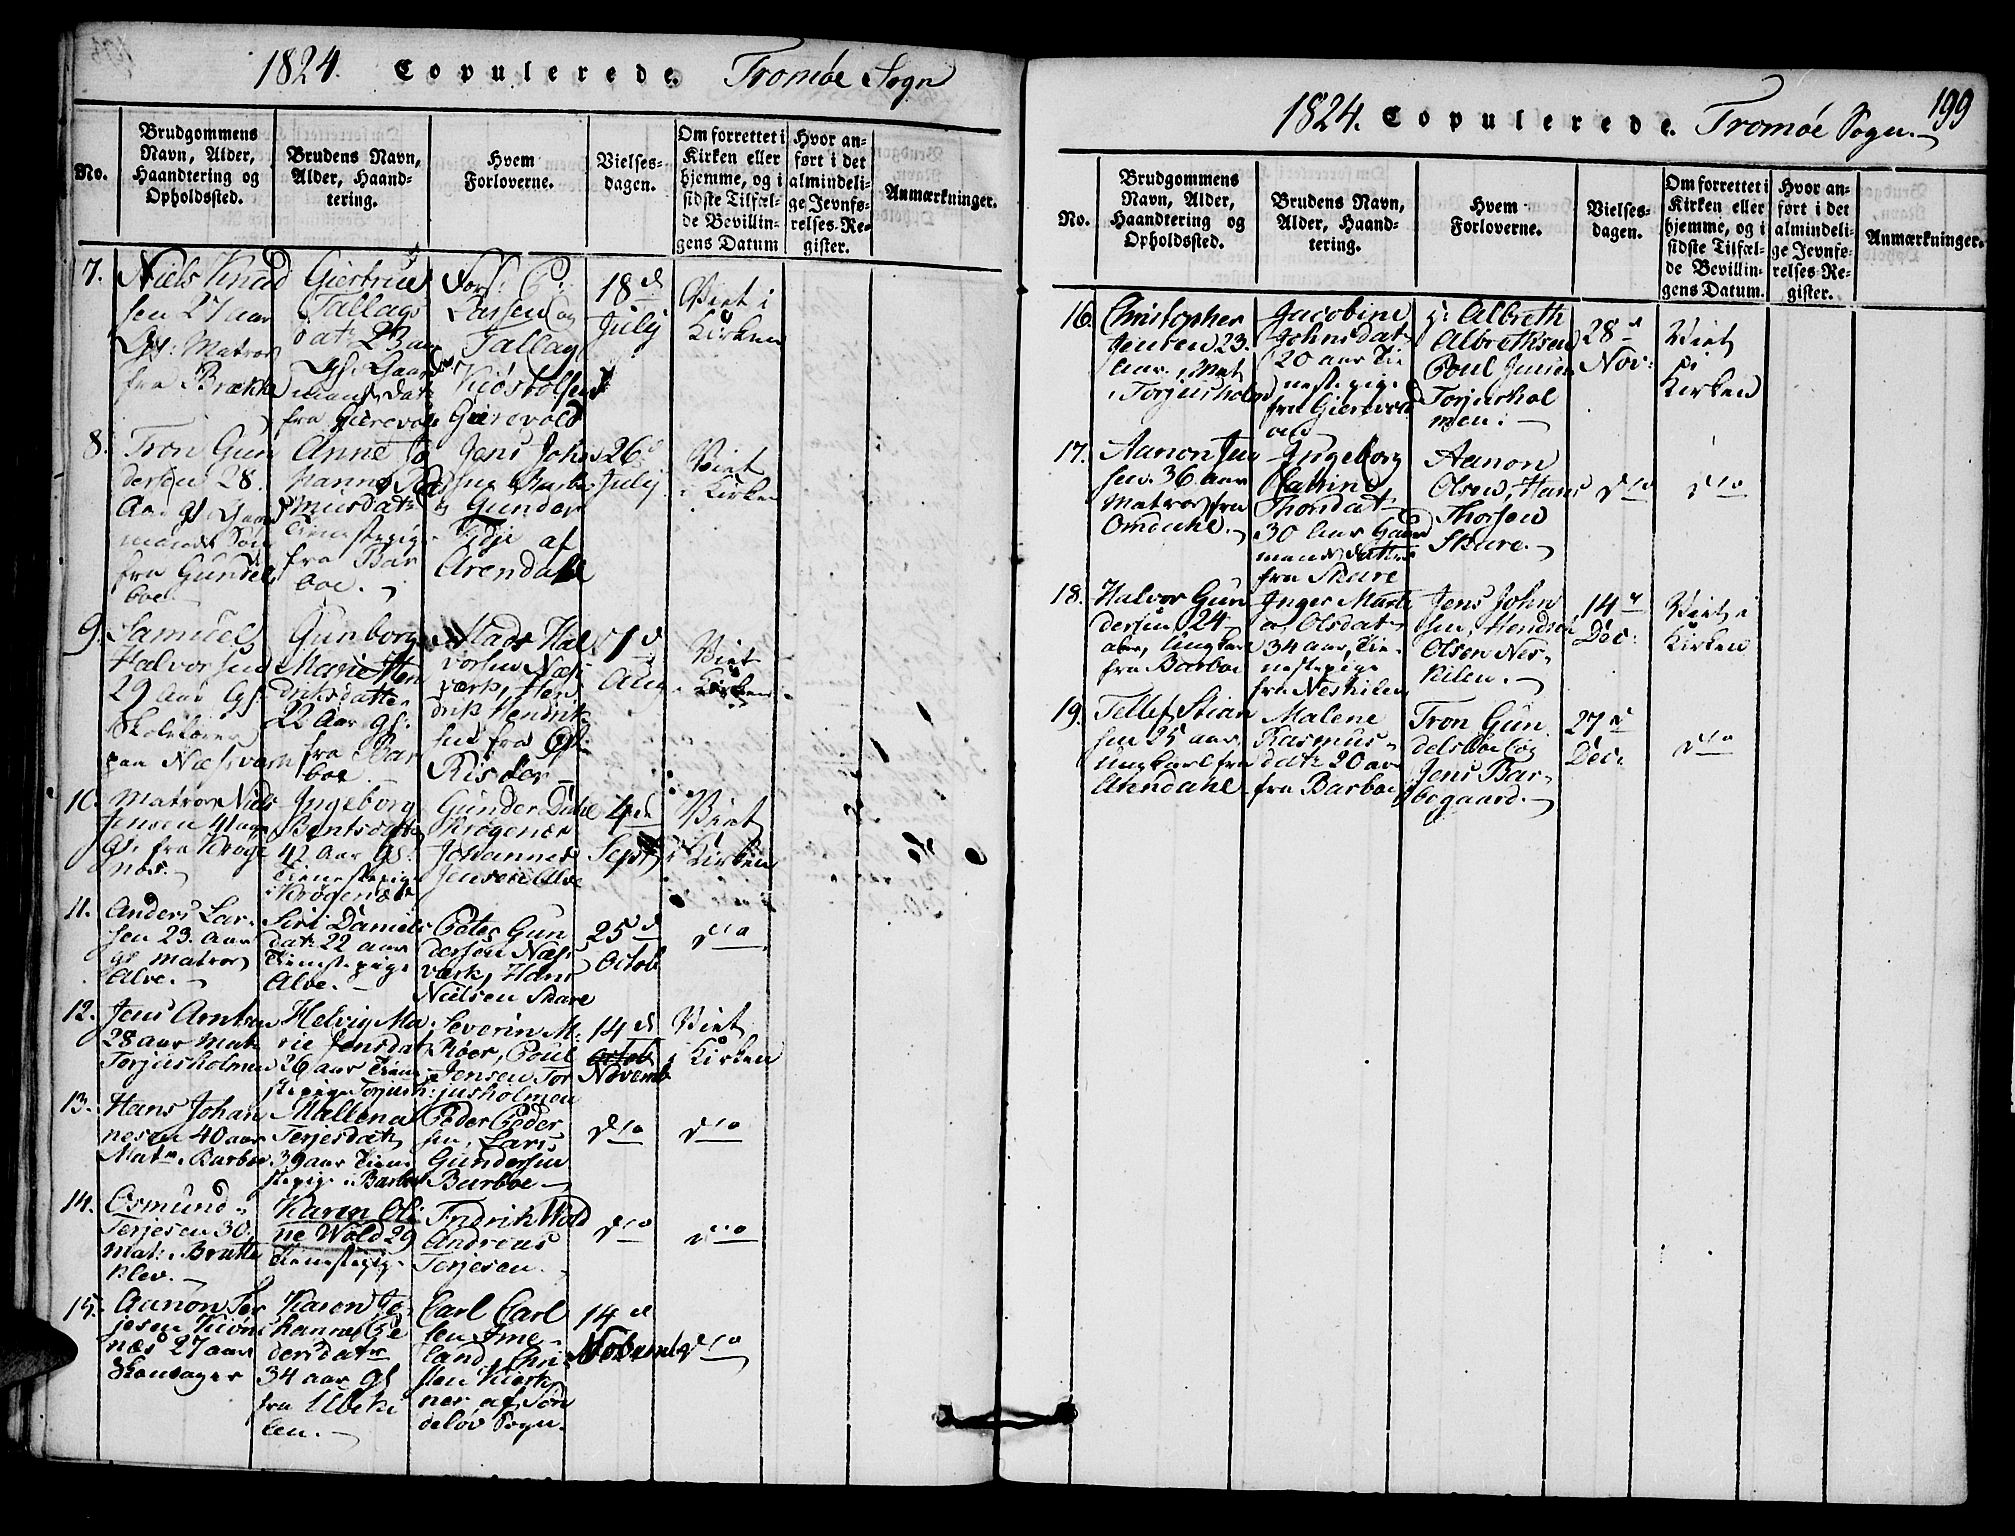 1824. Copulerede. Tromöe Sogn
No.
Brudgommens
Navn, Alder,
Haandtering og
Opholdssted.
Brudens Navn,
Alder, Haand-
tering.
Hvem
Forloverne.
Vielses-
dagen.
Om forrettet i
Kirken eller
hjemme, og i
sidste Tilfæl-
de Bevillin-
gens Datum
Hvor an-
ført i det
almindeli-
ge Jevnfø-
relses-Re-
gister.
Anmærkninger.
7.
Niels Knud
sen 27 aar
Matros
fra Brække
Giertrue
Tallags
dat. 23 aar
fra Gierevold
Larsen og
Tallag
Kiöstolsen
Gierevold
18 d
July
Viet i
Kirken
8.
Tron Gun
dersen 28.
Aar gl. Gaard
mands Søn
fra Gundels
boe.
Anne Jo
hanne Ras
musdat.
Tienestepige
fra Bar
boe.
Jens John
sen Barbo
og Gunder
Tidje af
Arendahl
26 d
July
Viet
i Kirken
9.
Samuel
Halvorsen
29 Aar gl.
Skolelærer
paa Næsværn
Gunborg
Marie Hen
driksdatter
22 Aar gl.
fra Bar
boe.
Mads Hal
vorsen Næs
værk, Hen
drik Hendrik
sen fra Øst
Risöer
1 d
Aug
Viet
i Kirken
10.
Matros Niels
Jensen 41 aar
gl. fra Kroge
næs.
Ingeborg
Bentsdatter
42 Aar gl.
Tienestepige
i Krögenæs
Gunder Dahl
Krögenæs
Johannes
Jensen Alve
4 d
Sept
Viet
i Kirken
11.
Anders Lar-
sen 23. aar
gl matros
Alve.
Siri Daniels
dat. 22 aar
Tienestepige
Alve.
Peter Gun
dersen Næs
værk, Hans
Nielsen Skare
25 d
Octob
dto
12.
Jens Arntsen
28 aar Mat.
Torjusholmen
Helvig Ma
rie Jensdat
26 aar Tiene
stepige Torjush:
Severin M.
Röer, Poul
Jensen Tor
jusholmen
14 d
octob
Novemb
Viet
i Kirken
13.
Hans Johan
nesen 40 aar
Mat. Barboe
Mallena
Terjesdat
39 aar Tiene
stepige i Barboe
Peder Peder
sen, Lars
Gundersen
Barboe
dto
dto
14.
Osmund
Terjesen 30.
mat. Bratte
klev.
Karen Oli
ne Wold 29
Tienestepige
Fredrik Wold
Andreas
Terjesen.
dto
dto
15.
Aanon Ter
jesen Kiön
næs 27 aar
Karen Jo
hanne Pe
dersdatr
34 aar gl
fra Ubeki
len.
Carl Carl
sen Ime
land, Chri
sten Kierk
ner af Sön
deløv Sogn.
14 d
Novemb
dto
1824. Copulerede. Tromöe Sogn. 199
No.
Brudgommens
Navn, Alder,
Haandtering og
Opholdssted.
Brudens Navn,
Alder, Haand-
tering.
Hvem
Forloverne.
Vielses-
dagen.
Om forrettet i
Kirken eller
hjemme, og i
sidste Tilfæl-
de Bevillin-
gens Datum.
Hvor an-
ført i det
almindeli-
ge Jevnfø-
relses-Re-
gister.
Anmærkninger.
16.
Christopher
Jensen 23.
Aar, Mat
i Torjusholm
Jacobine
Johnsdat
20 aar Tie
nestepige
fra Gierevold
Albreth
Albrethsen
Poul Jensen
Torjushol
men.
28 d
Nov:
Viet
i
Kirken
17.
Aanon Jen
sen 36 aar
Matros fra
Omdahl.
Ingeborg
Catrine
Thordat
30 Aar Gaard
mands datter
fra Skare
Aanon
Olsen, Hans
Thorsen
Skare.
dto
dto
18.
Halvor Gun
dersen 24
aar, Ungkarl
fra Barboe
Inger Marte
a Olsdat
34 aar, Tie
nestepige
fra Neskilen
Jens John
sen, Hendrik
Olsen Nes-
kilen.
14 d
Dec:
Viet i
Kirken
19.
Tellef Stian
sen 25 aar,
ungkarl fra
Arendahl
Malene
Rasmus-
dat. 20 aar
fra Barboe
Tron Gun
delsboe og
Jens Bar-
bogaard.
27 d
Dec:
dto